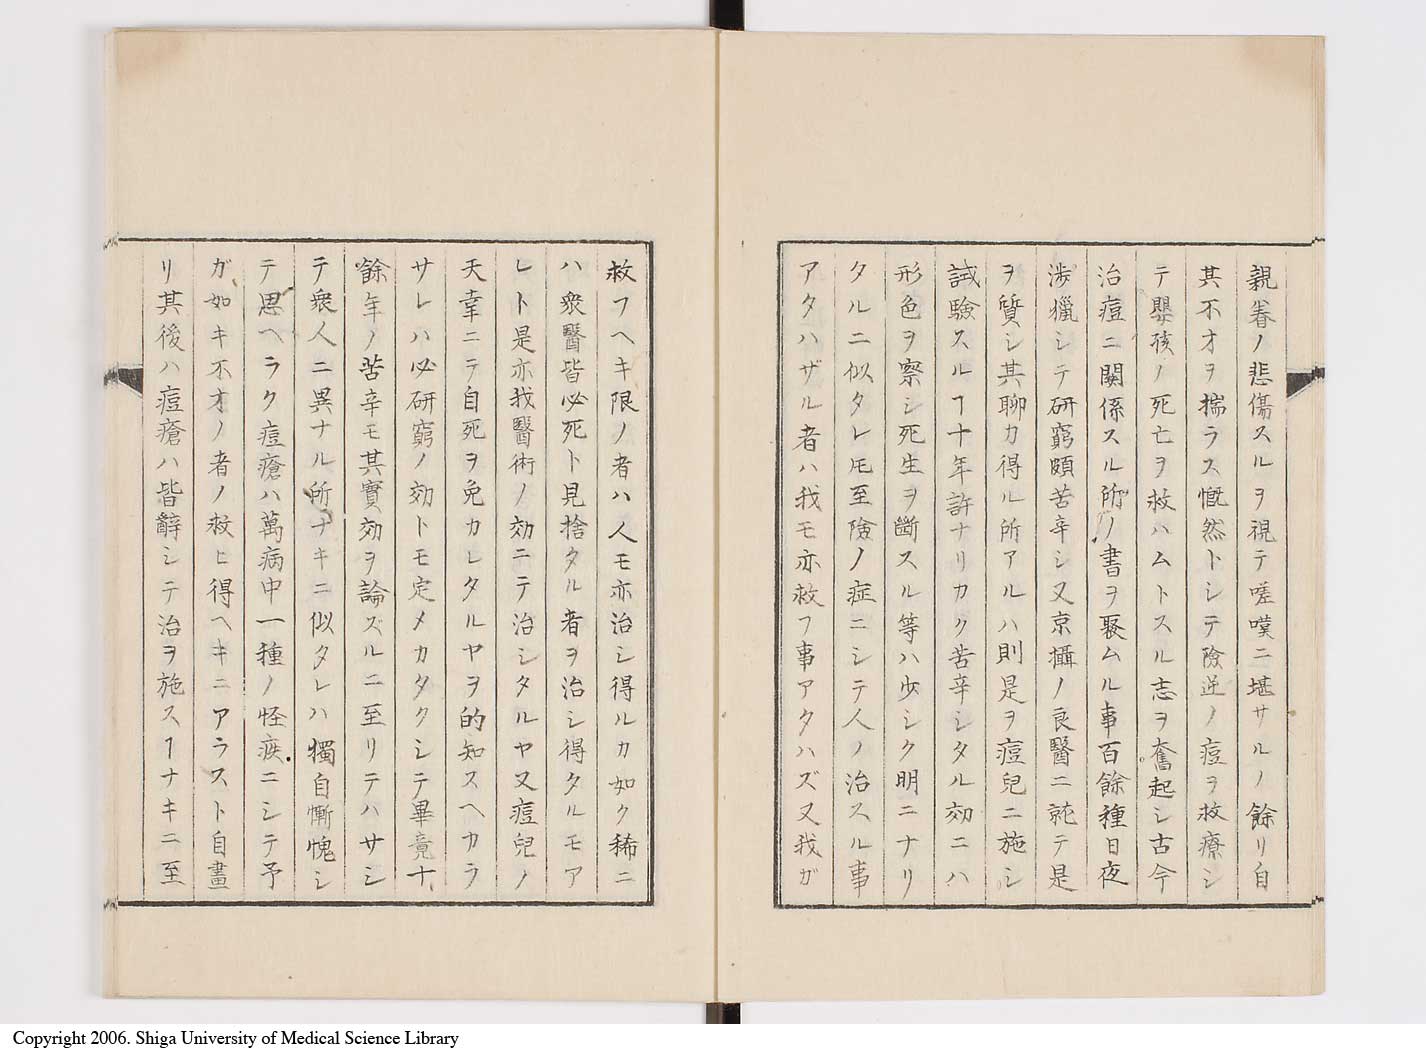 親眷ノ悲傷スルヲ視テ嗟嘆ニ堪サルノ餘リ自
其不才ヲ揣ラス慨然トシテ險逆ノ痘ヲ救療シ
テ嬰孩ノ死亡ヲ救ハムトスル志ヲ奮起シ古今
治痘ニ關係スル所ノ書ヲ聚ムル事百餘種日夜
渉獵シテ研窮頗苦辛シ又京攝ノ良醫ニ就テ是
ヲ質シ其聊カ得ル所アルハ則是ヲ痘兒ニ施シ
試驗スルヿ十年許ナリカク苦辛シタル効ニハ
形色ヲ察シ死生ヲ斷スル等ハ少シク明ニナリ
タルニ似タレ𪜈至險ノ症ニシテ人ノ治スル事
アタハザル者ハ我モ亦救フ事アタハズ又我ガ
救フヘキ限ノ者ハ人モ亦治シ得ルカ如ク稀ニ
ハ衆醫皆必死ト見捨タル者ヲ治シ得タルモア
レト是亦我醫術ノ効ニテ治シタルヤ又痘兒ノ
天幸ニテ自死ヲ免カレタルヤヲ的知スヘカラ
サレハ必研窮ノ効トモ定メカタクシテ畢竟十
餘年ノ苦辛モ其實効ヲ論ズルニ至リテハサシ
テ衆人ニ異ナル所ナキニ似タレハ獨自慚愧シ
テ思ヘラク痘瘡ハ萬病中一種ノ怪疾ニシテ予
ガ如キ不才ノ者ノ救ヒ得ヘキニアラスト自畫
リ其後ハ痘瘡ハ皆辭シテ治ヲ施スヿナキニ至
Copyright 2006. Shiga University of Medical Science Library